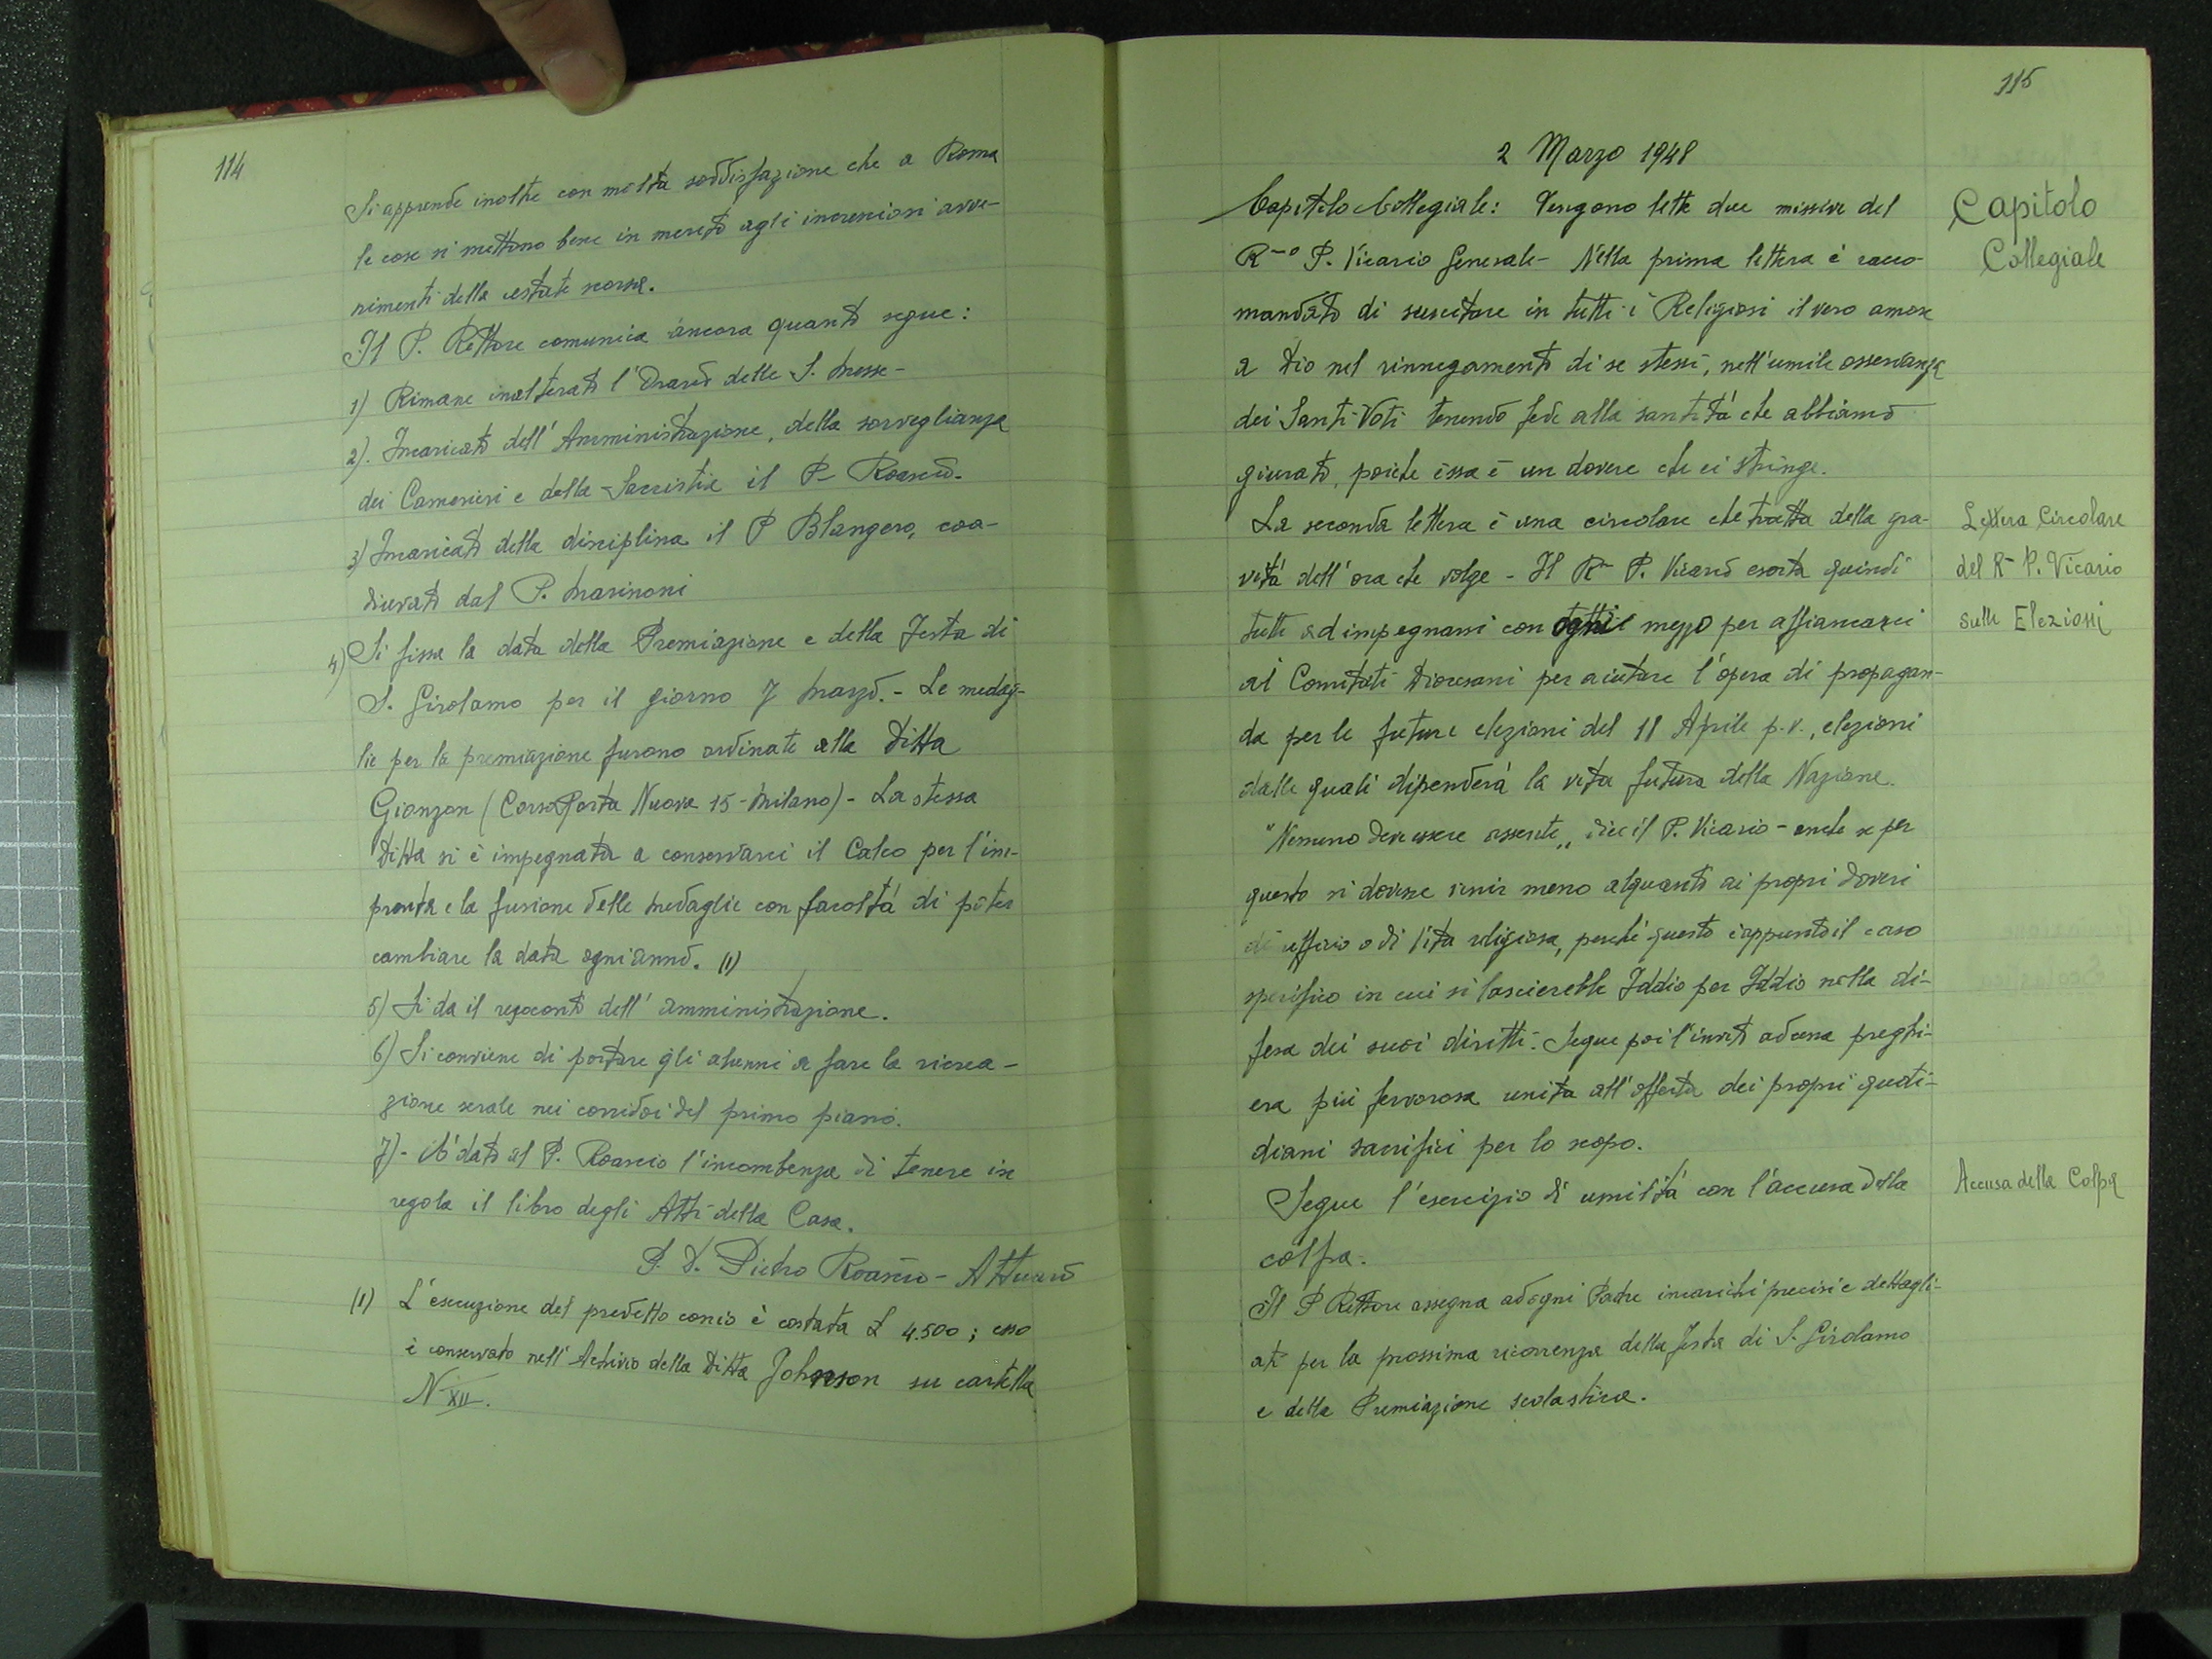 114
Si apprende inoltre con molta soddisfazione che a Roma
le cose si mettono bene in merito agli increnciosi avve-
nimenti della estate scorsa.
Il P. Rettore comunica ancora quanto segue:
1) Rimane inalterato l'Orario delle S. Messe-
2). Incaricato dell'Amministrazione, della sorveglianza
dei Camerieri e della Sacristia il P. Roascio.
3) Incaricato della disciplina il P Blangero, coa-
diuvato dal P. Marinoni
4) Si fissa la data della Premiazione e della Festa di
S. Girolamo per il giorno 7 Marzo. - Le medag-
lie per la premiazione furono ordinate alla Ditta
Gionzon (Corso Porta Nuova 15 - Milano) - La stessa
Ditta si è impegnata a conservarci il Calco per l'im-
pronta e la fusione delle Medaglie con facoltá di poter
cambiare la data ogni anno. (1)
5) Si da il resoconto dell'amministrazione.
6) Si conviene di portare gli alunni a fare la ricrea-
zione serale nei corridoi del primo piano.
7) - È dato al P. Roascio l'incombenza di tenere in
regola il libro degli Atti della Casa.
P. D. Pietro Roascio - Attuario
(1) L'esecuzione del predetto conio è costata L 4.500; esso
è conservato nell'Archivio della Ditta Johnson su cartella
N XII.
115
2 Marzo 1948
Capitolo Collegiale: Vengono lette due missive del
Capitolo
Collegiale
R-o P. Vicario Generale - Nella prima lettera è racco-
mandato di suscitare in tutti i Religiosi il vero amore
a Dio nel rinnegamento di se stessi, nell'umile osservanza
dei Santi Voti tenendo fede alla santitá che abbiamo
giurato, poiche essa è un dovere che ci stringe.
La seconda lettera è una circolare che tratta della gra-
Lettera Circolare
del R- P. Vicario
sulle Elezioni
vitá dell'ora che volge - Il R- P. Vicario esorta quindi
tutti ad impegnarsi con ogni mezzo per affiancarci
ai Comitati Diocesani per aiutare l'opera di propagan-
da per le future elezioni del 18 Aprile p.v., elezioni
dalle quali dipenderá la vita futura della Nazione.
"Nessuno deve essere assente„ dice il P. Vicario - anche se per
questo si dovesse venir meno alquanto ai propri doveri
di ufficio o di Vita religiosa, perché questo è appunto il caso
specifico in cui si lascierebbe Iddio per Iddio nella di-
fesa dei suoi diritti. Segue poi l'invito ad una preghi-
era piú fervorosa unita all'offerta dei propri quoti-
diani sacrifici per lo scopo.
Segue l'esercizio di umiltá con l'accusa della
Accusa della Colpa
colpa.
Il P Rettore assegna ad ogni Padre incarichi precisi e dettagli-
ati per la prossima ricorrenza della festa di S. Girolamo
e della Premiazione scolastica.